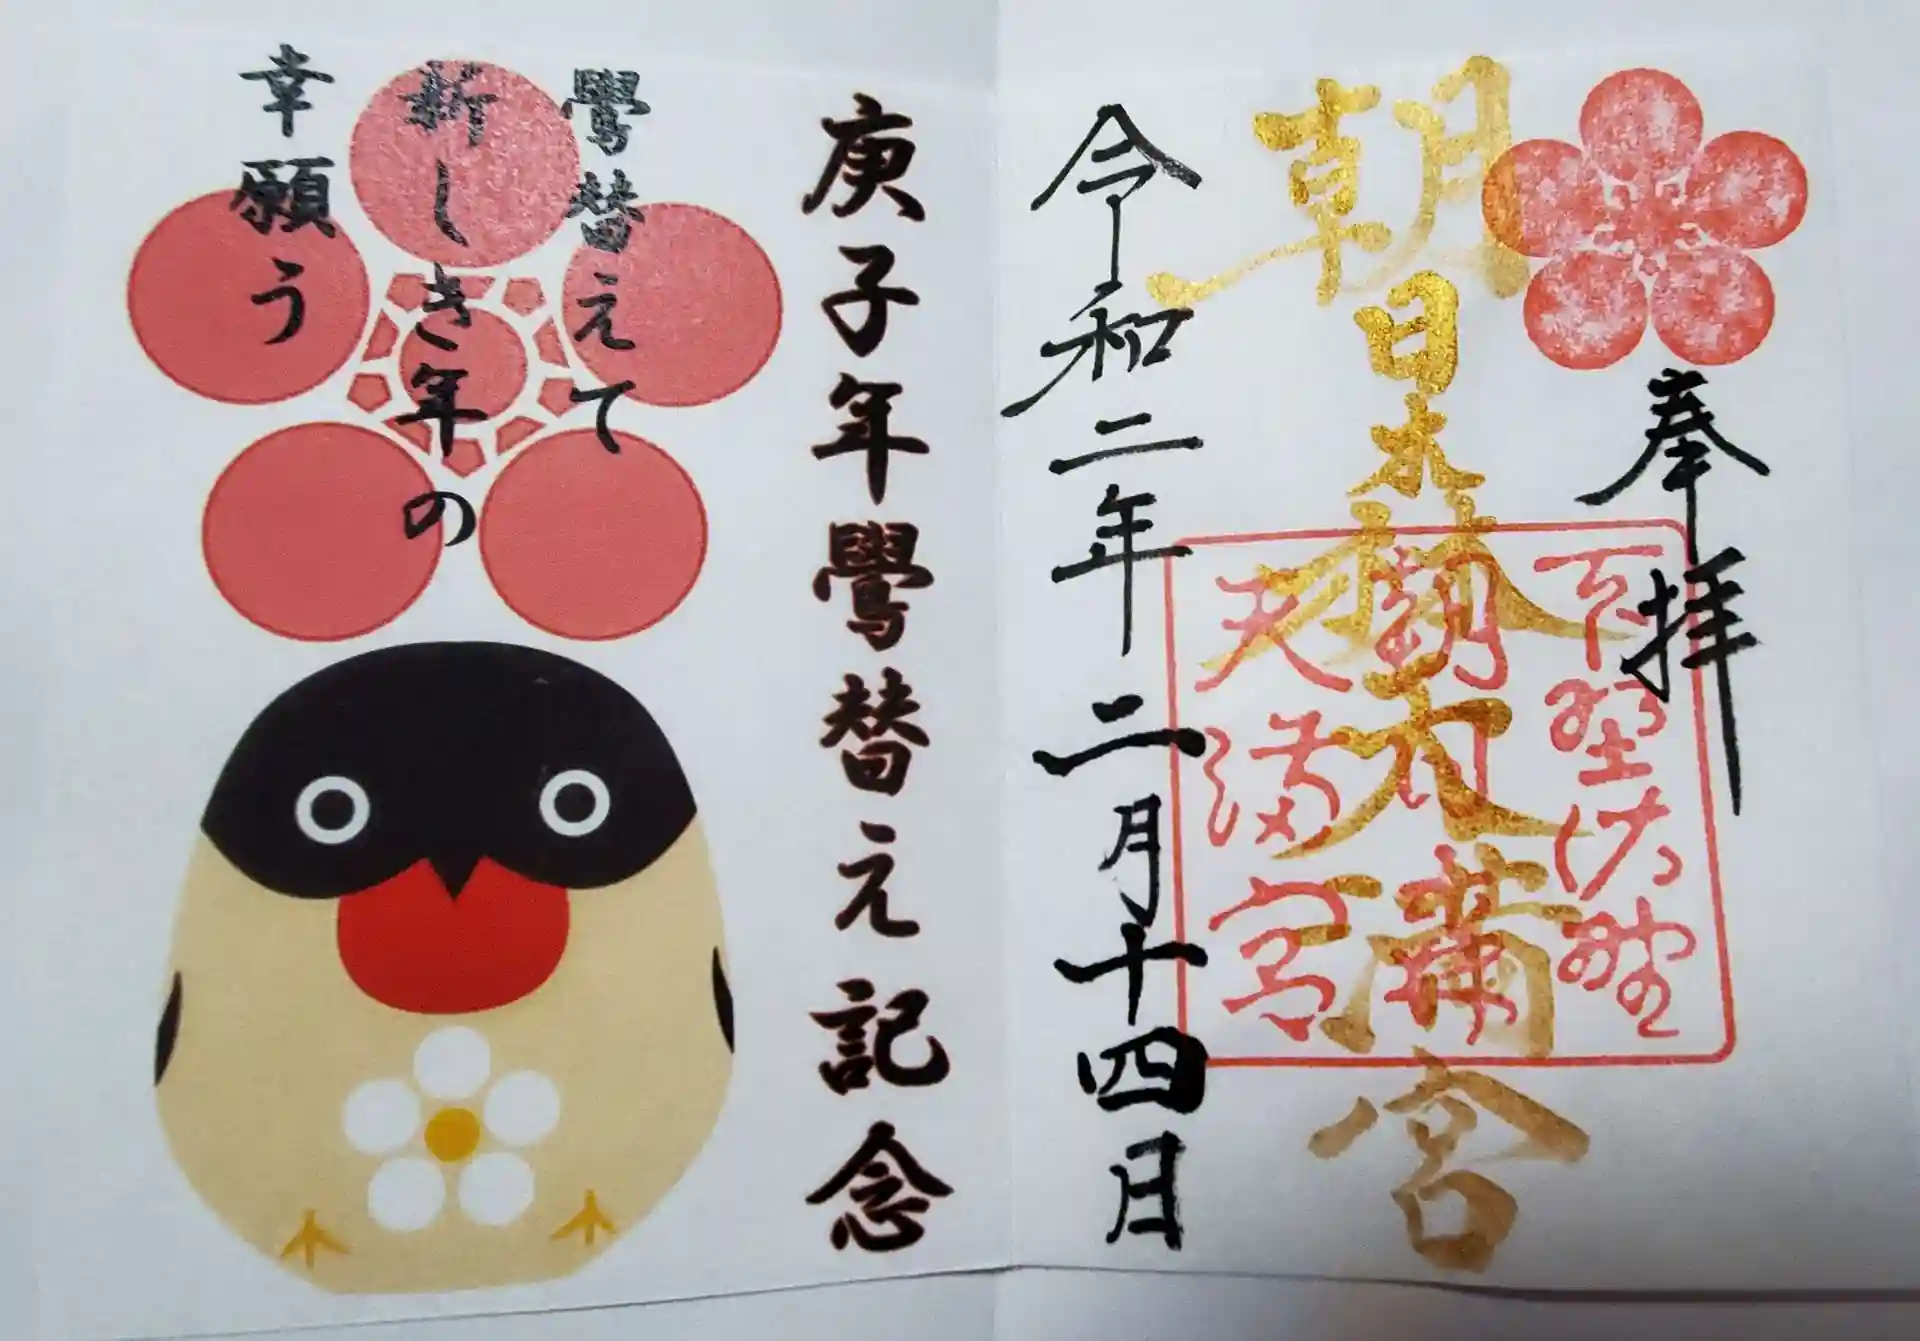 奉拝
朝日森天満宮
下野佐野
朝日森
天満宮
令和二年二月十四日
庚子年鷽替え記念
鷽替えて
新しき年の
幸願う